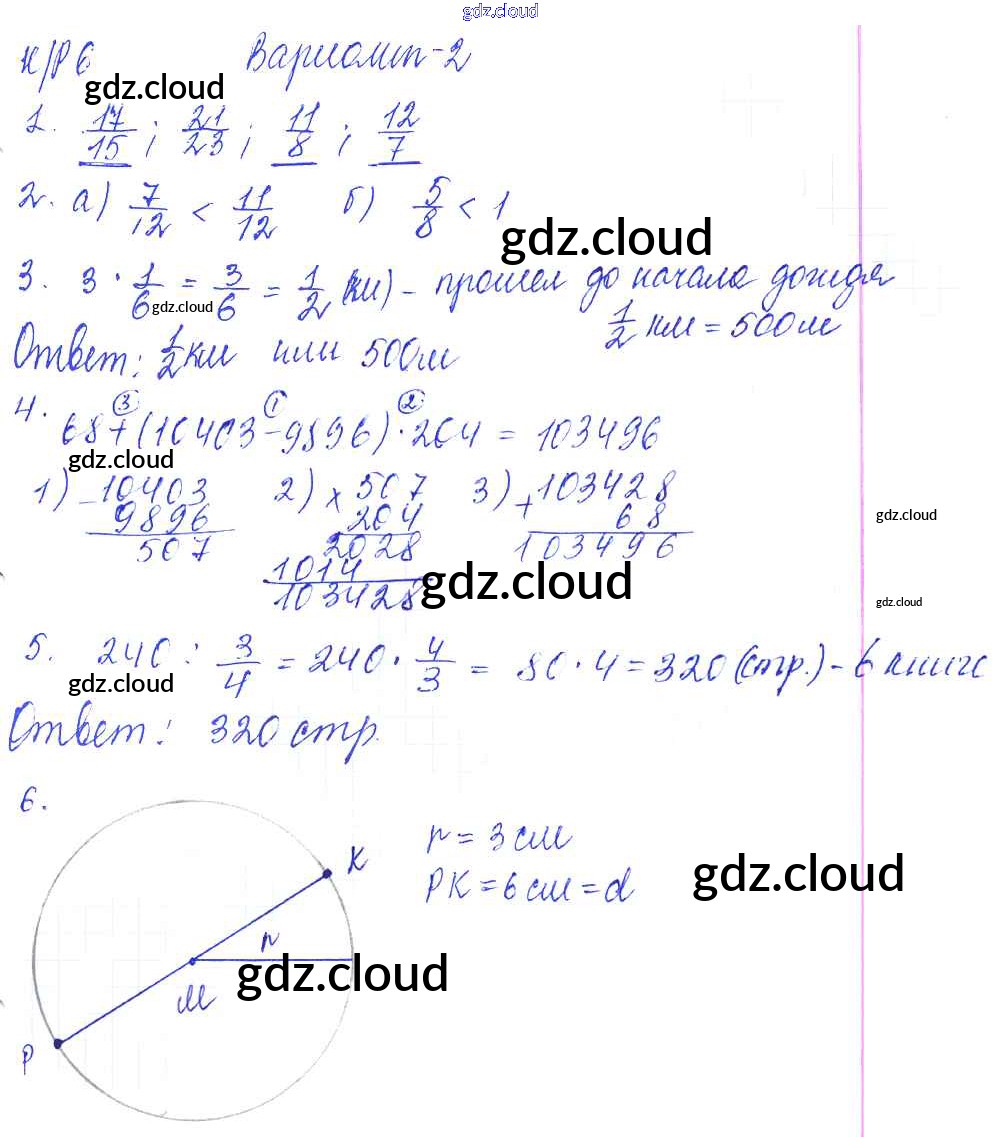 gdz.cloud
К/Р 6 Вариант-2
gdz.cloud
1. 17/15 ; 21/23 ; 11/8 ; 12/7
2. а) 7/12 < 11/12 б) 5/8 < 1
gdz.cloud
3. 3 · 1/6 = 3/6 = 1/2 (км) - прошел до начала дождя
gdz.cloud
1/2 км = 500 м
Ответ: 1/2 км или 500 м
4. 68 + (10403 - 9896) · 204 = 103496
3 1 2
gdz.cloud
1) - 10403 2) × 507 3) + 103428
9896 204 68
507 2028 103496
1014
103428
gdz.cloud
gdz.cloud
gdz.cloud
5. 240 : 3/4 = 240 · 4/3 = 80 · 4 = 320 (стр.) - в книге
gdz.cloud
Ответ: 320 стр.
6.
K r = 3 см
PK = 6 см = d
gdz.cloud
r
gdz.cloud
M
P